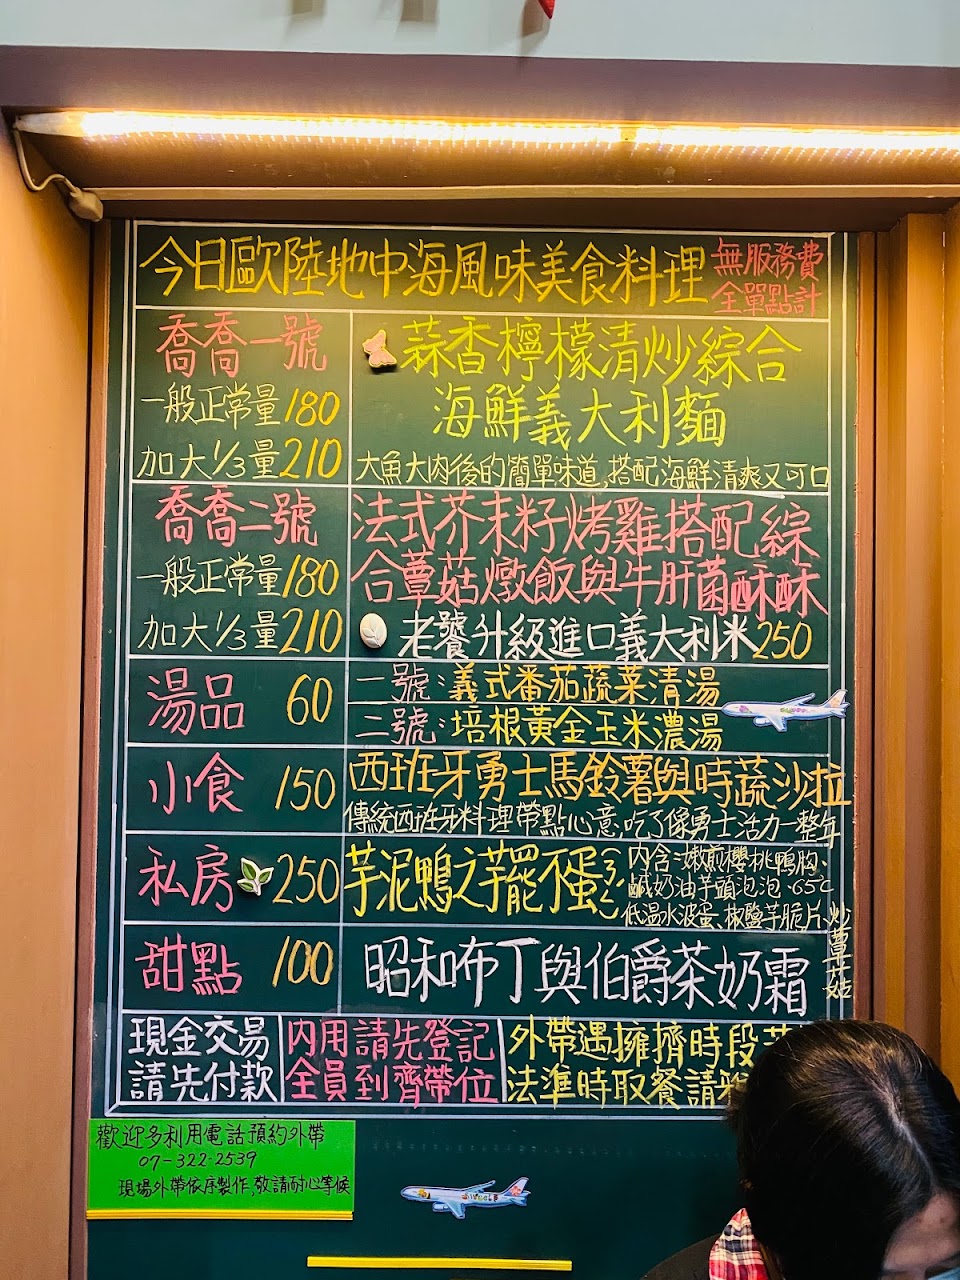 今日歐陸地中海風味美食料理
無服務費
全單點計
喬喬一號
一般正常量180
加大1/3量210
蒜香檸檬清炒綜合
海鮮義大利麵
大魚大肉後的簡單味道,搭配海鮮清爽又可口
喬喬二號
一般正常量180
加大1/3量210
法式芥末籽烤雞搭配綜
合蕈菇燉飯與牛肝菌酥酥
老饕升級進口義大利米250
湯品 60
一號:義式番茄蔬菜清湯
二號:培根黃金玉米濃湯
小食 150
西班牙勇士馬鈴薯與時蔬沙拉
傳統西班牙料理帶點心意,吃了像勇士活力一整年
私房 250
芋泥鴨之芋罷不蛋
內含:嫩煎櫻桃鴨胸、
鹹奶油芋頭泡泡、65℃
低溫水波蛋、椒鹽芋脆片、炒蕈菇
甜點 100
昭和布丁與伯爵茶奶霜
現金交易
請先付款
內用請先登記
全員到齊帶位
外帶遇擁擠時段
法準時取餐請
歡迎多利用電話預約外帶
07-322-2539
現場外帶依序製作,敬請耐心等候